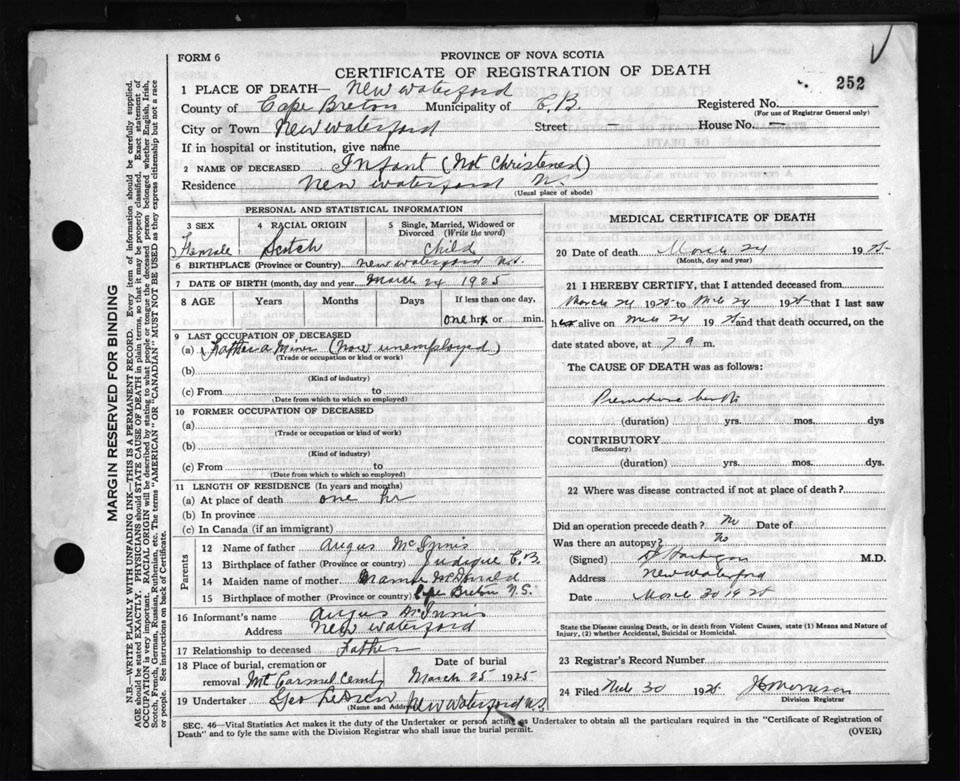 FORM 6
PROVINCE OF NOVA SCOTIA
CERTIFICATE OF REGISTRATION OF DEATH
252
1 PLACE OF DEATH— New Waterford
County of Cape Breton Municipality of C.B. Registered No.
(For use of Registrar General only)
City or Town New Waterford Street — House No. —
If in hospital or institution, give name
2 NAME OF DECEASED Infant (Not Christened)
Residence New Waterford N.S.
(Usual place of abode)
MARGIN RESERVED FOR BINDING
N.B.—WRITE PLAINLY WITH UNFADING INK—THIS IS A PERMANENT RECORD. Every item of information should be carefully supplied.
AGE should be stated EXACTLY. PHYSICIANS should STATE CAUSE OF DEATH in plain terms, so that it may be properly classified. Exact statement of
OCCUPATION is very important. RACIAL ORIGIN will be described by stating to what people or tongue the deceased person belonged whether English, Irish,
Scotch, French, German, Russian, Ruthenian, etc. The terms "AMERICAN" OR "CANADIAN" MUST NOT BE USED as they express citizenship but not a race
or people. See instructions on back of Certificate.
PERSONAL AND STATISTICAL INFORMATION
3 SEX
Female
4 RACIAL ORIGIN
Scotch
5 Single, Married, Widowed or
Divorced (Write the word)
Child
6 BIRTHPLACE (Province or Country) New Waterford N.S.
7 DATE OF BIRTH (month, day and year) March 24 1925
8 AGE Years Months Days If less than one day,
one hrs or min.
9 LAST OCCUPATION OF DECEASED
(a) Father a Miner (now unemployed)
(Trade or occupation or kind of work)
(b)
(Kind of industry)
(c) From to
(Date from which to which so employed)
10 FORMER OCCUPATION OF DECEASED
(a)
(Trade or occupation or kind of work)
(b)
(Kind of industry)
(c) From to
(Date from which to which so employed)
11 LENGTH OF RESIDENCE (In years and months)
(a) At place of death one hr
(b) In province
(c) In Canada (if an immigrant)
Parents
12 Name of father Angus McInnis
13 Birthplace of father (Province or country) Judique C.B.
14 Maiden name of mother Mamie McDonald
15 Birthplace of mother (Province or country) Cape Breton N.S.
16 Informant's name Angus McInnis
Address New Waterford
17 Relationship to deceased Father
18 Place of burial, cremation or removal Mt Carmel Cemty
Date of burial
March 25 1925
19 Undertaker Geo New Waterford N.S.
(Name and Address)
MEDICAL CERTIFICATE OF DEATH
20 Date of death March 24 1925
(Month, day and year)
21 I HEREBY CERTIFY, that I attended deceased from
March 24 1925 to Mch 24 1925 that I last saw
her alive on Mch 24 1925 and that death occurred, on the
date stated above, at 7 9 m.
The CAUSE OF DEATH was as follows:
Premature birth
(duration) yrs. mos. dys
CONTRIBUTORY
(Secondary)
(duration) yrs. mos. dys.
22 Where was disease contracted if not at place of death?
Did an operation precede death? No Date of
Was there an autopsy? No
(Signed) M.D.
Address New Waterford
Date March 30 1925
State the Disease causing Death, or in death from Violent Causes, state (1) Means and Nature of
Injury, (2) whether Accidental, Suicidal or Homicidal.
23 Registrar's Record Number
24 Filed Mch 30 1925 Morrison
Division Registrar
SEC. 46—Vital Statistics Act makes it the duty of the Undertaker or person acting as Undertaker to obtain all the particulars required in the "Certificate of Registration of
Death" and to fyle the same with the Division Registrar who shall issue the burial permit.
(OVER)